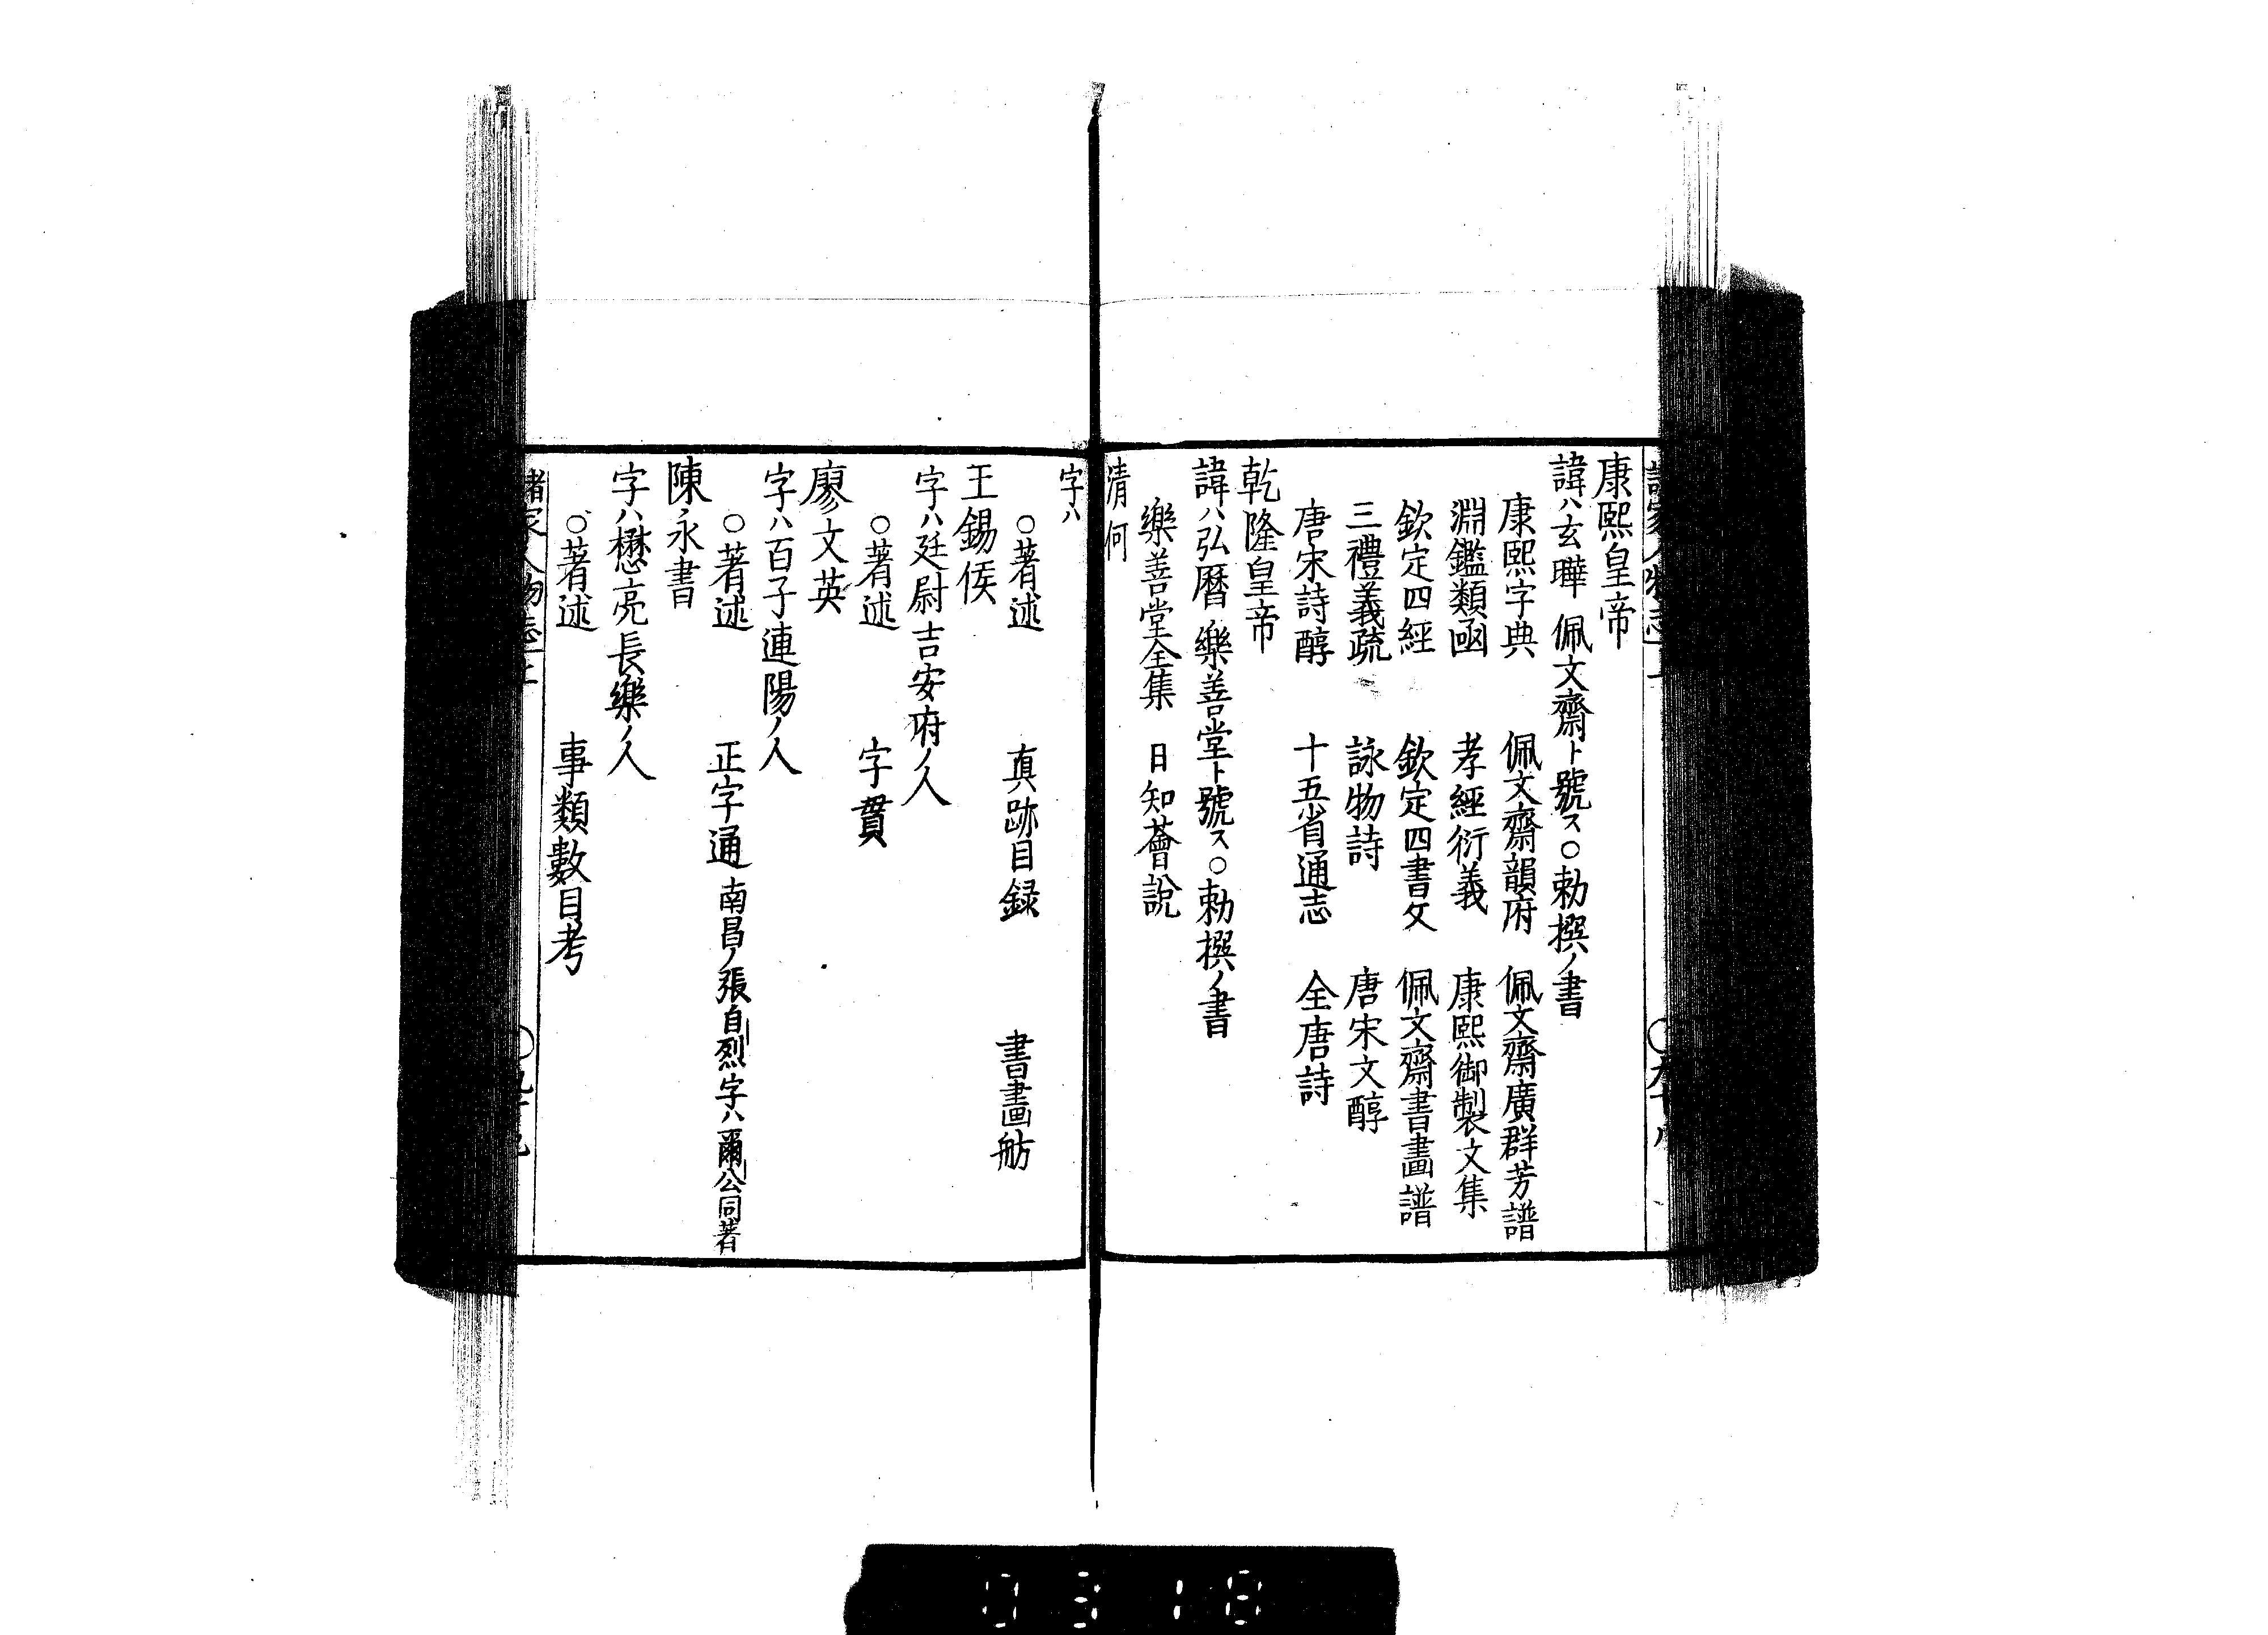 康熙皇帝
諱ハ玄曄 佩文齋ト號ス○勅撰ノ書
康熙字典 佩文齋韻府 佩文齋廣群芳譜
淵鑑類函 孝經衍義 康熙御製文集
欽定四經 欽定四書文 佩文齋書畫譜
三禮義疏 詠物詩 唐宋文醇
唐宋詩醇 十五省通志 全唐詩
乾隆皇帝
諱ハ弘曆 樂善堂ト號ス○勅撰ノ書
樂善堂全集 日知薈說
清何
字ハ
○著述 真跡目録 書畫舫
王錫侯
字ハ廷尉吉安府ノ人
○著述 字貫
廖文英
字ハ百子連陽ノ人
○著述 正字通 南昌ノ張自烈字ハ爾公同著
陳永書
字ハ懋亮長樂ノ人
○著述 事類數目考
諸家人物志
0318